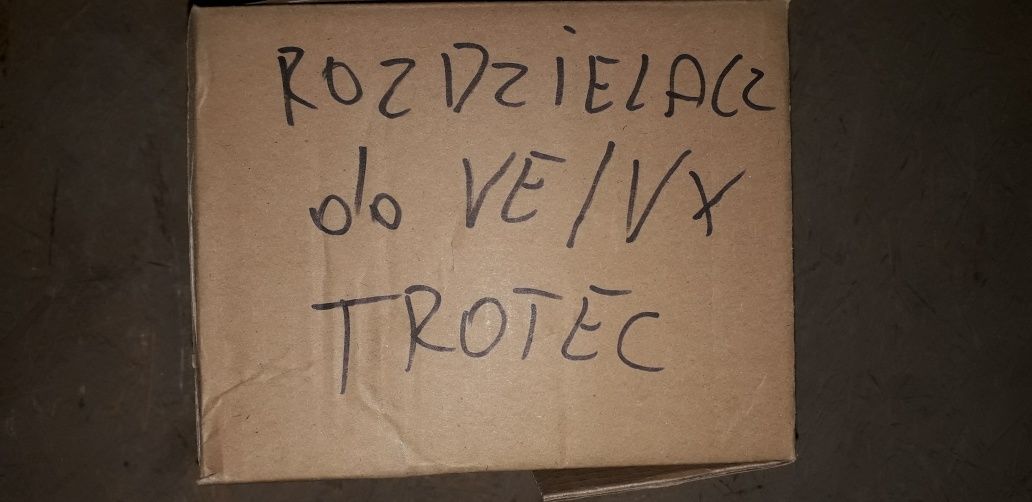 ROZDZiELACZ
do VE/VX
TROTEC